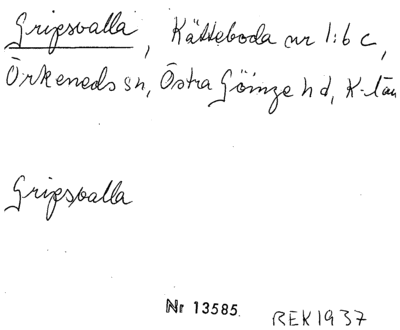 Gripsvalla, Kätteboda nr 1:6 c,
Örkeneds sn, Östra Göinge hd, K-län
Gripsvalla
Nr 13585. REK1937